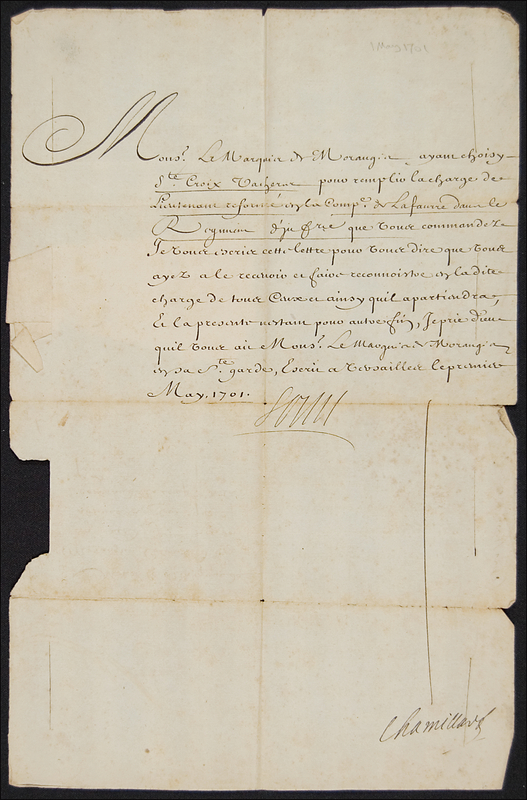 1 May 1701
Mons.r Le Marquis de Morangis ayant choisy
S.te Croix pour remplir la charge de
Lieutenant reformé en la Comp.e de Lafaurie dans le
Regiment que vous commandez
Je vous escris cette lettre pour vous dire que vous
ayez a le recevoir et faire reconnoistre en la dite
charge de tous Ceux et ainsy quil apartiendra,
Et la presente nestant pour autre fin, Je prie dieu
quil vous ait Mons.r Le Marquis de Morangis
en sa S.te garde, Escrit a Versailles le premier
May, 1701.
Louis
Chamillart